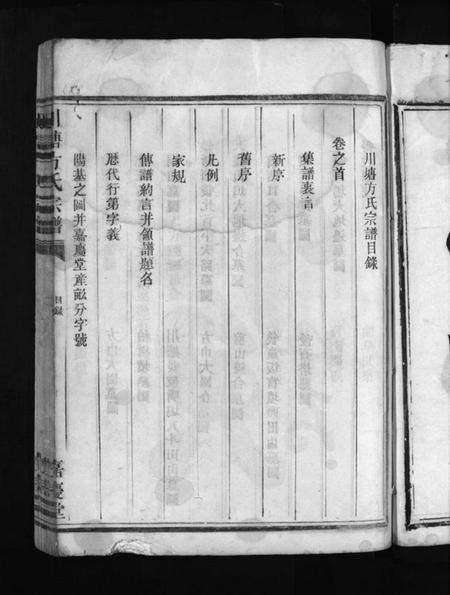 川塘方氏宗譜目錄
卷之首
集譜衷言
新序
舊序
凡例
家規
傳譜約言并領譜題名
歷代行第字義
陽基之圖并嘉慶堂產畝分字號
川塘方氏宗譜
目錄
嘉慶堂